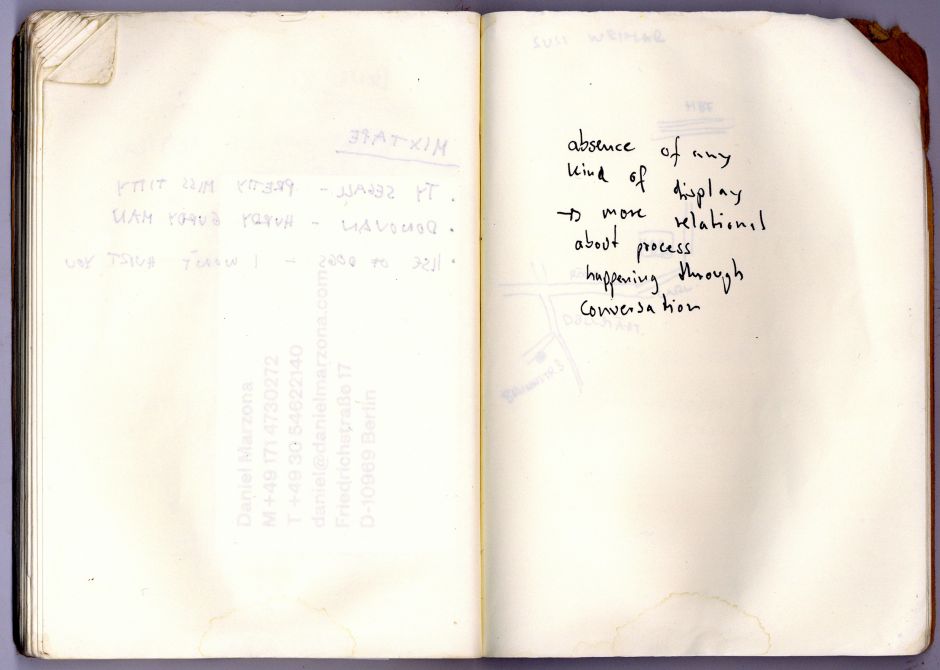 MIXTAPE
· TY SEGALL - PRETTY MISS TITTY
· DONOVAN - HURDY GURDY MAN
· OF DOGS - I WON'T HURT YOU
Daniel Marzona
M +49 171 4730272
T +49 30 54622140
daniel@danielmarzona.com
Friedrichstraße 17
D-10969 Berlin
HBF
absence of any
kind of display
→ more relational
about process
happening through
conversation